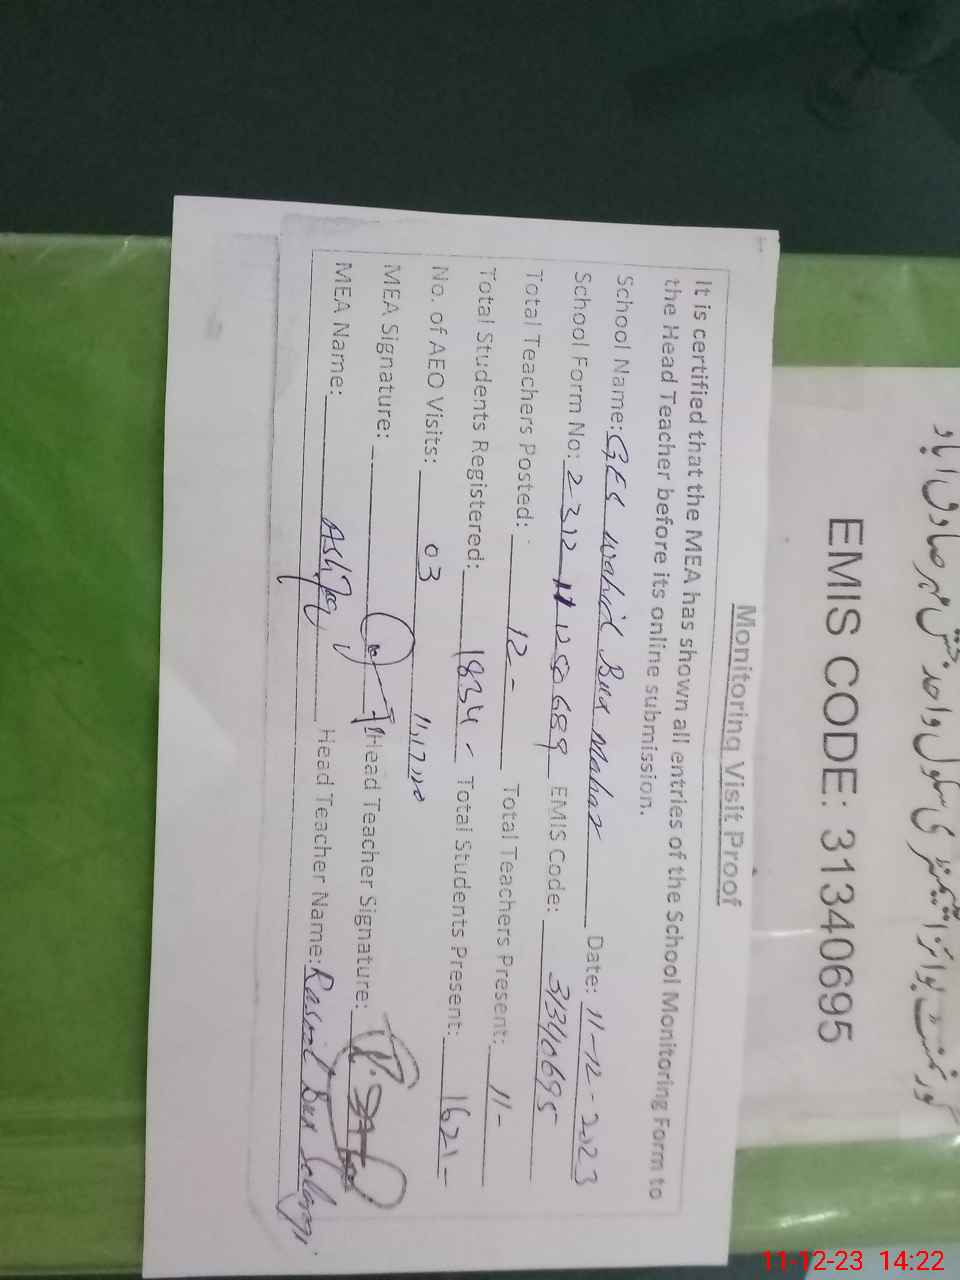 گورنمنٹ بوائز ایلیمنٹری سکول واحد بخش مہر صادق آباد
EMIS CODE: 31340695
Monitoring Visit Proof
It is certified that the MEA has shown all entries of the School Monitoring Form to
the Head Teacher before its online submission.
School Name: GES Wahid Bux Mahar Date: 11-12-2023
School Form No: 2312 EMIS Code: 31340695
Total Teachers Posted: 12- Total Teachers Present: 11-
Total Students Registered: 1834- Total Students Present: 1621-
No. of AEO Visits: 03
MEA Signature: Head Teacher Signature:
MEA Name: Ashfaq Head Teacher Name: Rasool Bux
11-12-23 14:22